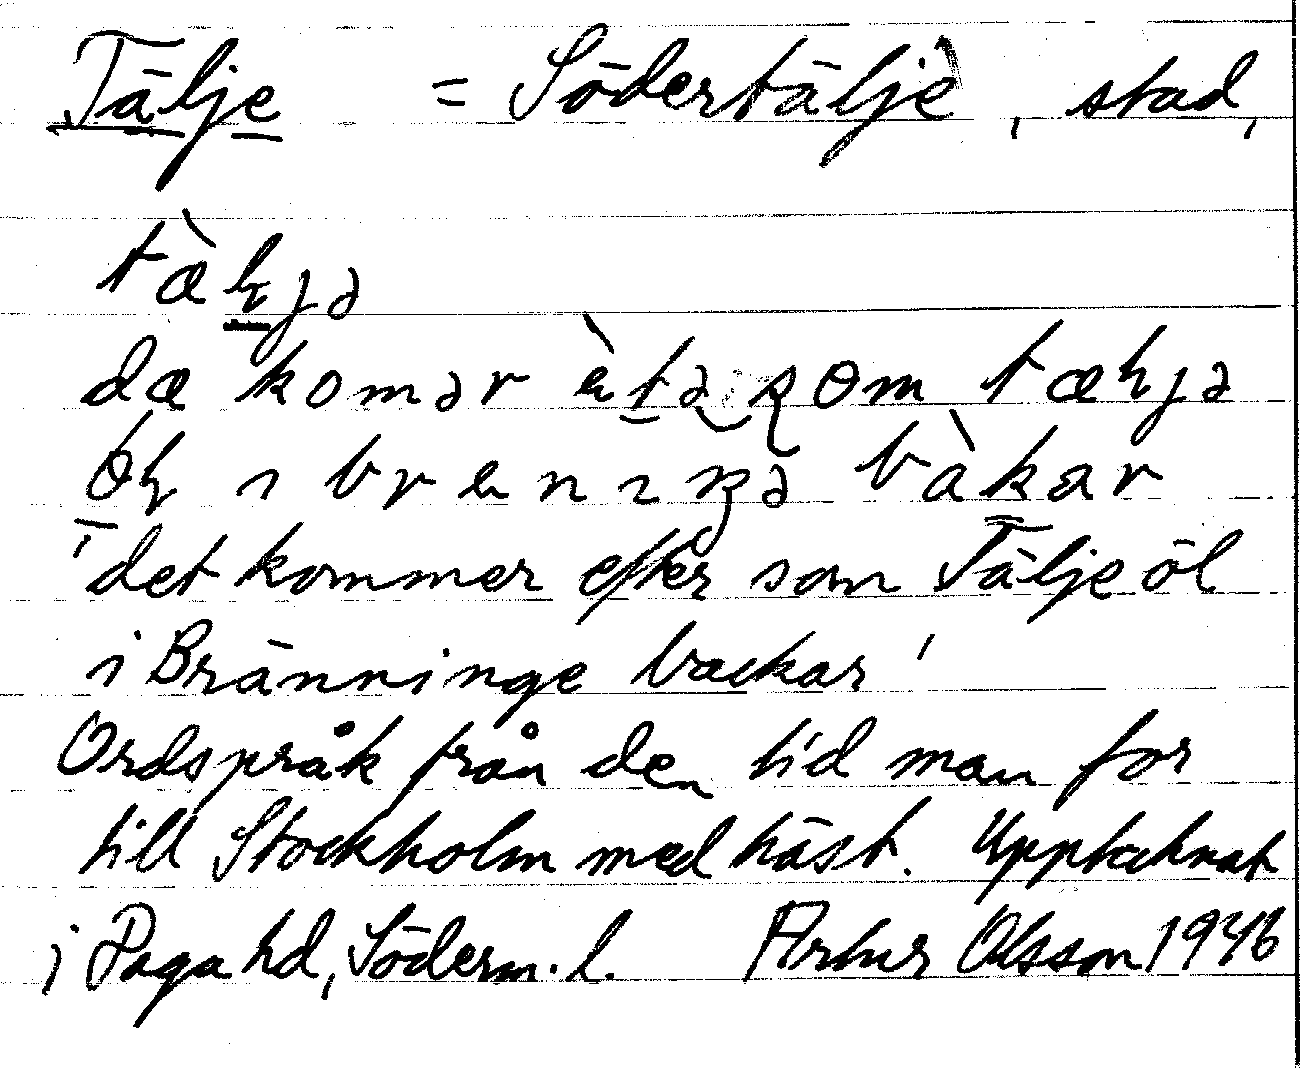 Tälje = Södertälje, stad,
tæ̀ɽjə
dæ komər
det kommer efter som Tälje öl
i Bränninge backar'
Ordspråk från den tid man for
till Stockholm med häst. Upptecknat
i Daga hd, Söderm. l. Arthur Olsson 1946